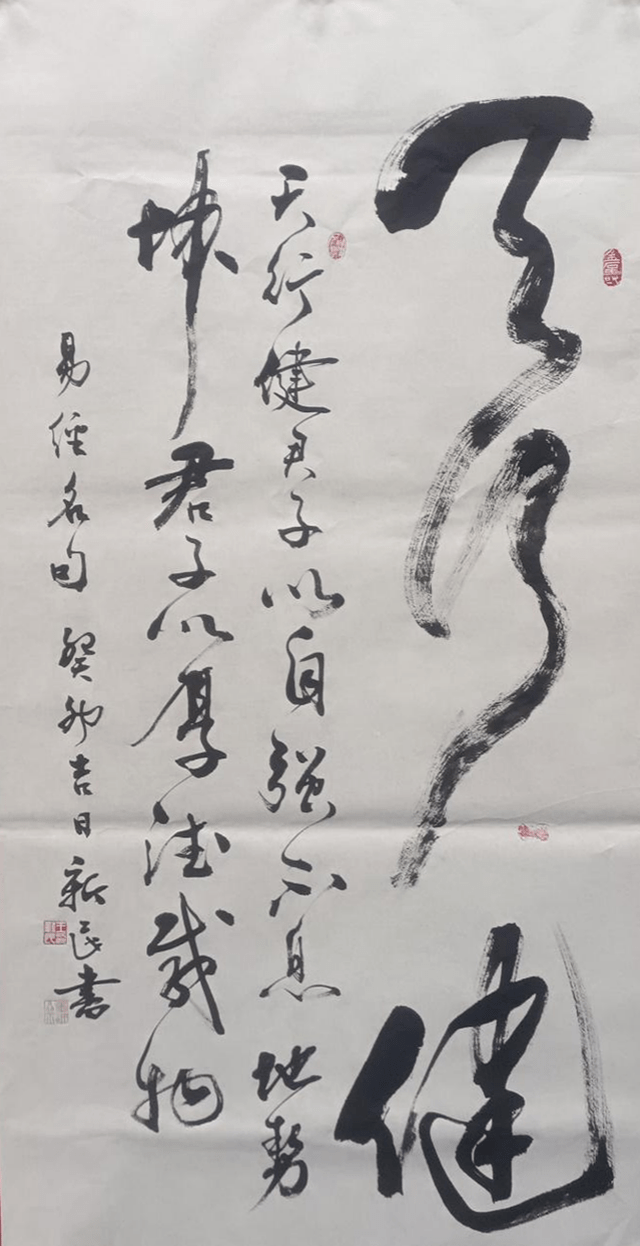 天行健
天行健君子以自强不息地势
坤君子以厚德载物
易经名句癸卯吉日新民书